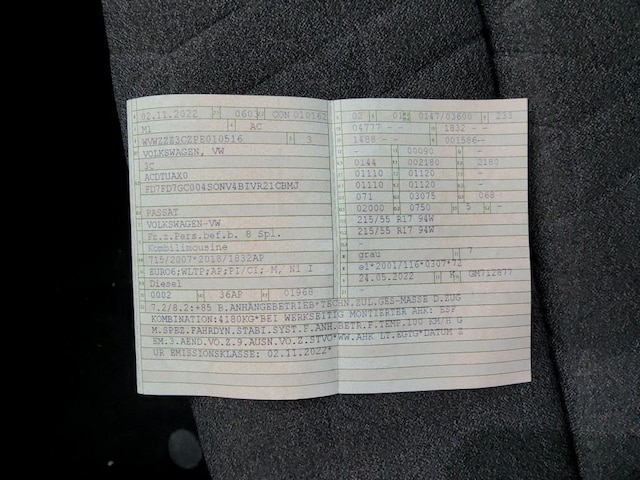 02.11.2022 0603
M1 AC
3
VOLKSWAGEN, VW
3C
ACDTUAX0
FD7FD7GC004SONV4BIVR21CBMJ
PASSAT
VOLKSWAGEN-VW
Fz.z.Pers.bef.b. 8 Spl.
Kombilimousine
715/2007*2018/1832AP
EURO6;WLTP;AP;PI/CI; M, N1 I
Diesel
0002 36AP 01968
02 01 0147/03600 233
04777 - - 1832 - -
1488 - - 001586--
- 00090 -
0144 002180 2180
01110 01120 -
01110 01120 -
071 03075 068
02000 0750 5 -
215/55 R17 94W
215/55 R17 94W
-
-
grau 7
e1*2001/116*0307*72
24.05.2022 K GM712877
-
7.2/8.2:+85 B.ANHÄNGEBETRIEB*TECHN.ZUL.GES-MASSE D.ZUG
KOMBINATION:4180KG*BEI WERKSEITIG MONTIERTER AHK: ESF
M.SPEZ.FAHRDYN.STABI.SYST.F.ANH.BETR.F.TEMP.100 KM/H G
EM.3.AEND.VO.Z.9.AUSN.VO.Z.STVO*WW.AHK LT.EGTG*DATUM Z
UR EMISSIONSKLASSE: 02.11.2022*